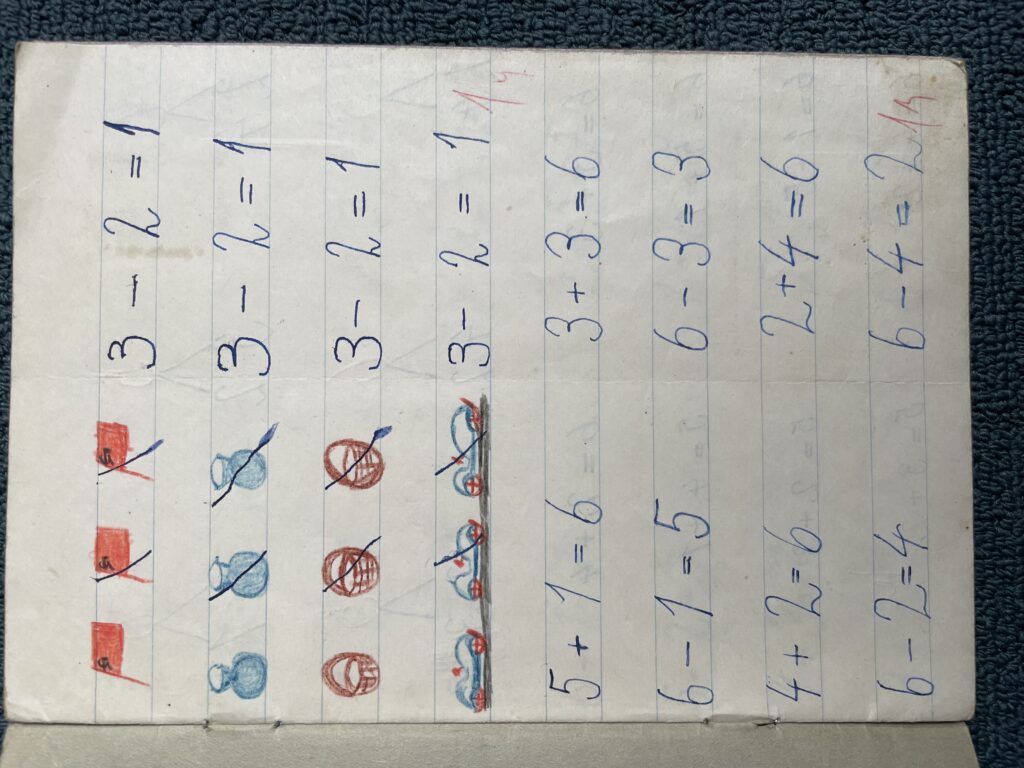 3 - 2 = 1
3 - 2 = 1
3 - 2 = 1
3 - 2 = 1
5 + 1 = 6 3 + 3 = 6
6 - 1 = 5 6 - 3 = 3
4 + 2 = 6 2 + 4 = 6
6 - 2 = 4 6 - 4 = 2